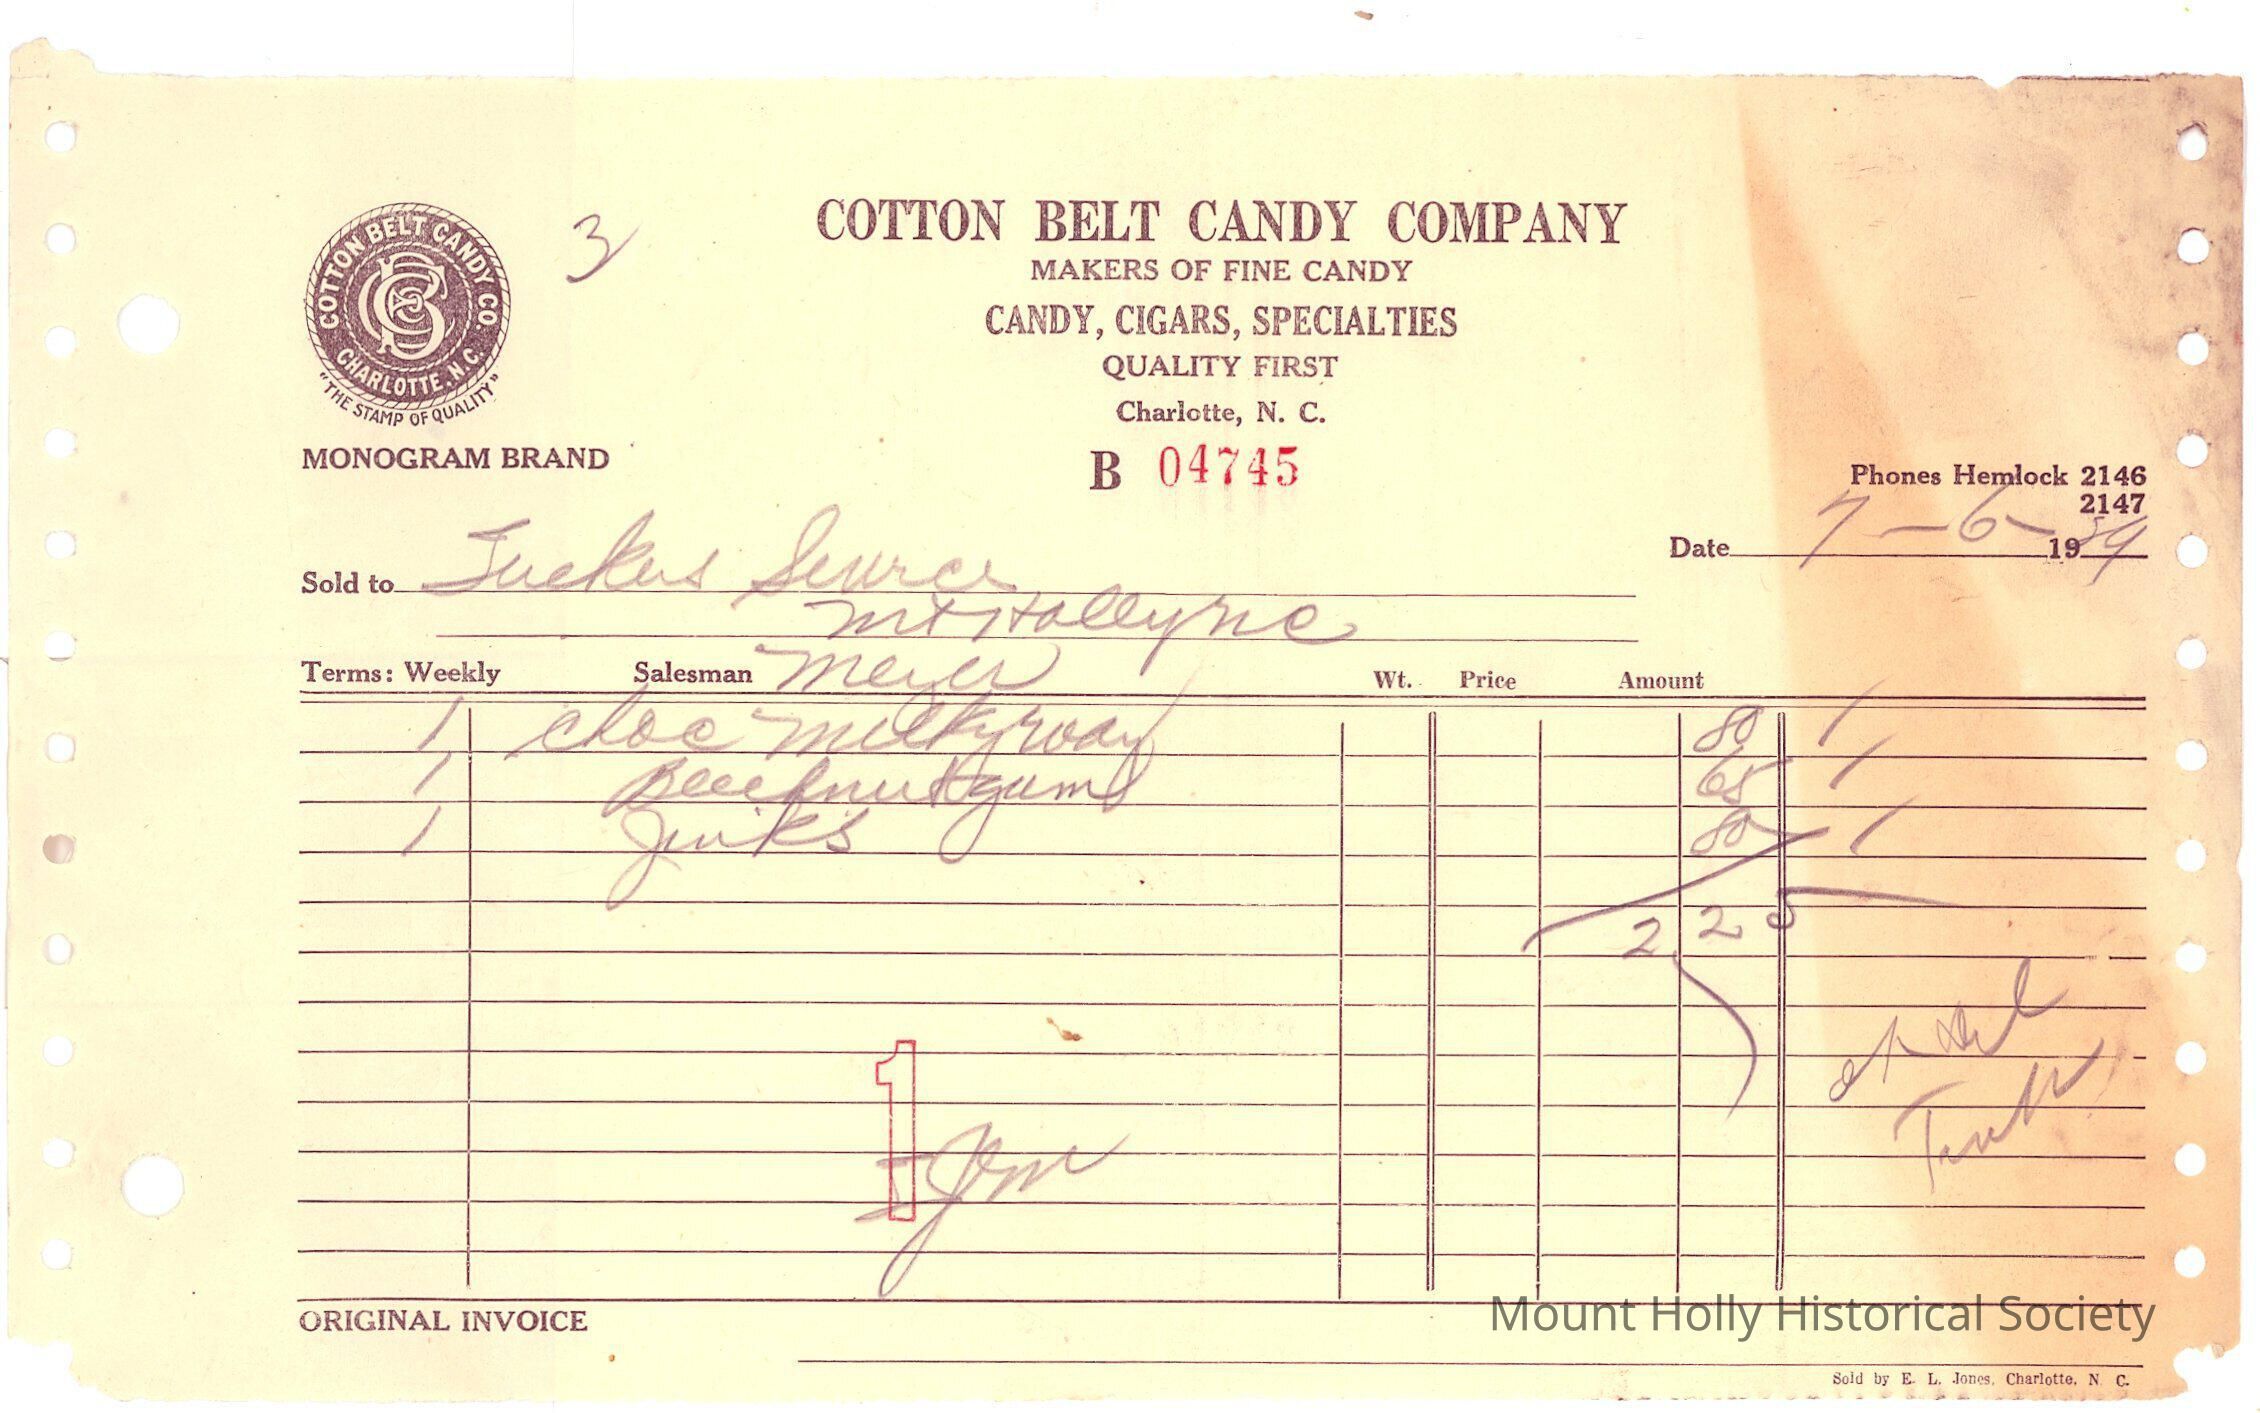 COTTON BELT CANDY CO.
CHARLOTTE, N. C.
"THE STAMP OF QUALITY"
MONOGRAM BRAND
3
COTTON BELT CANDY COMPANY
MAKERS OF FINE CANDY
CANDY, CIGARS, SPECIALTIES
QUALITY FIRST
Charlotte, N. C.
B 04745
Phones Hemlock 2146
2147
Date 7-6-1959
Sold to Tuckers Service
Mt Holly nc
Terms: Weekly Salesman Meyer Wt. Price Amount
1 choc milkyway 80
1 Beechnut gum 65
1 Jinks 80
2 25
1
ORIGINAL INVOICE
Mount Holly Historical Society
Sold by E. L. Jones, Charlotte, N. C.